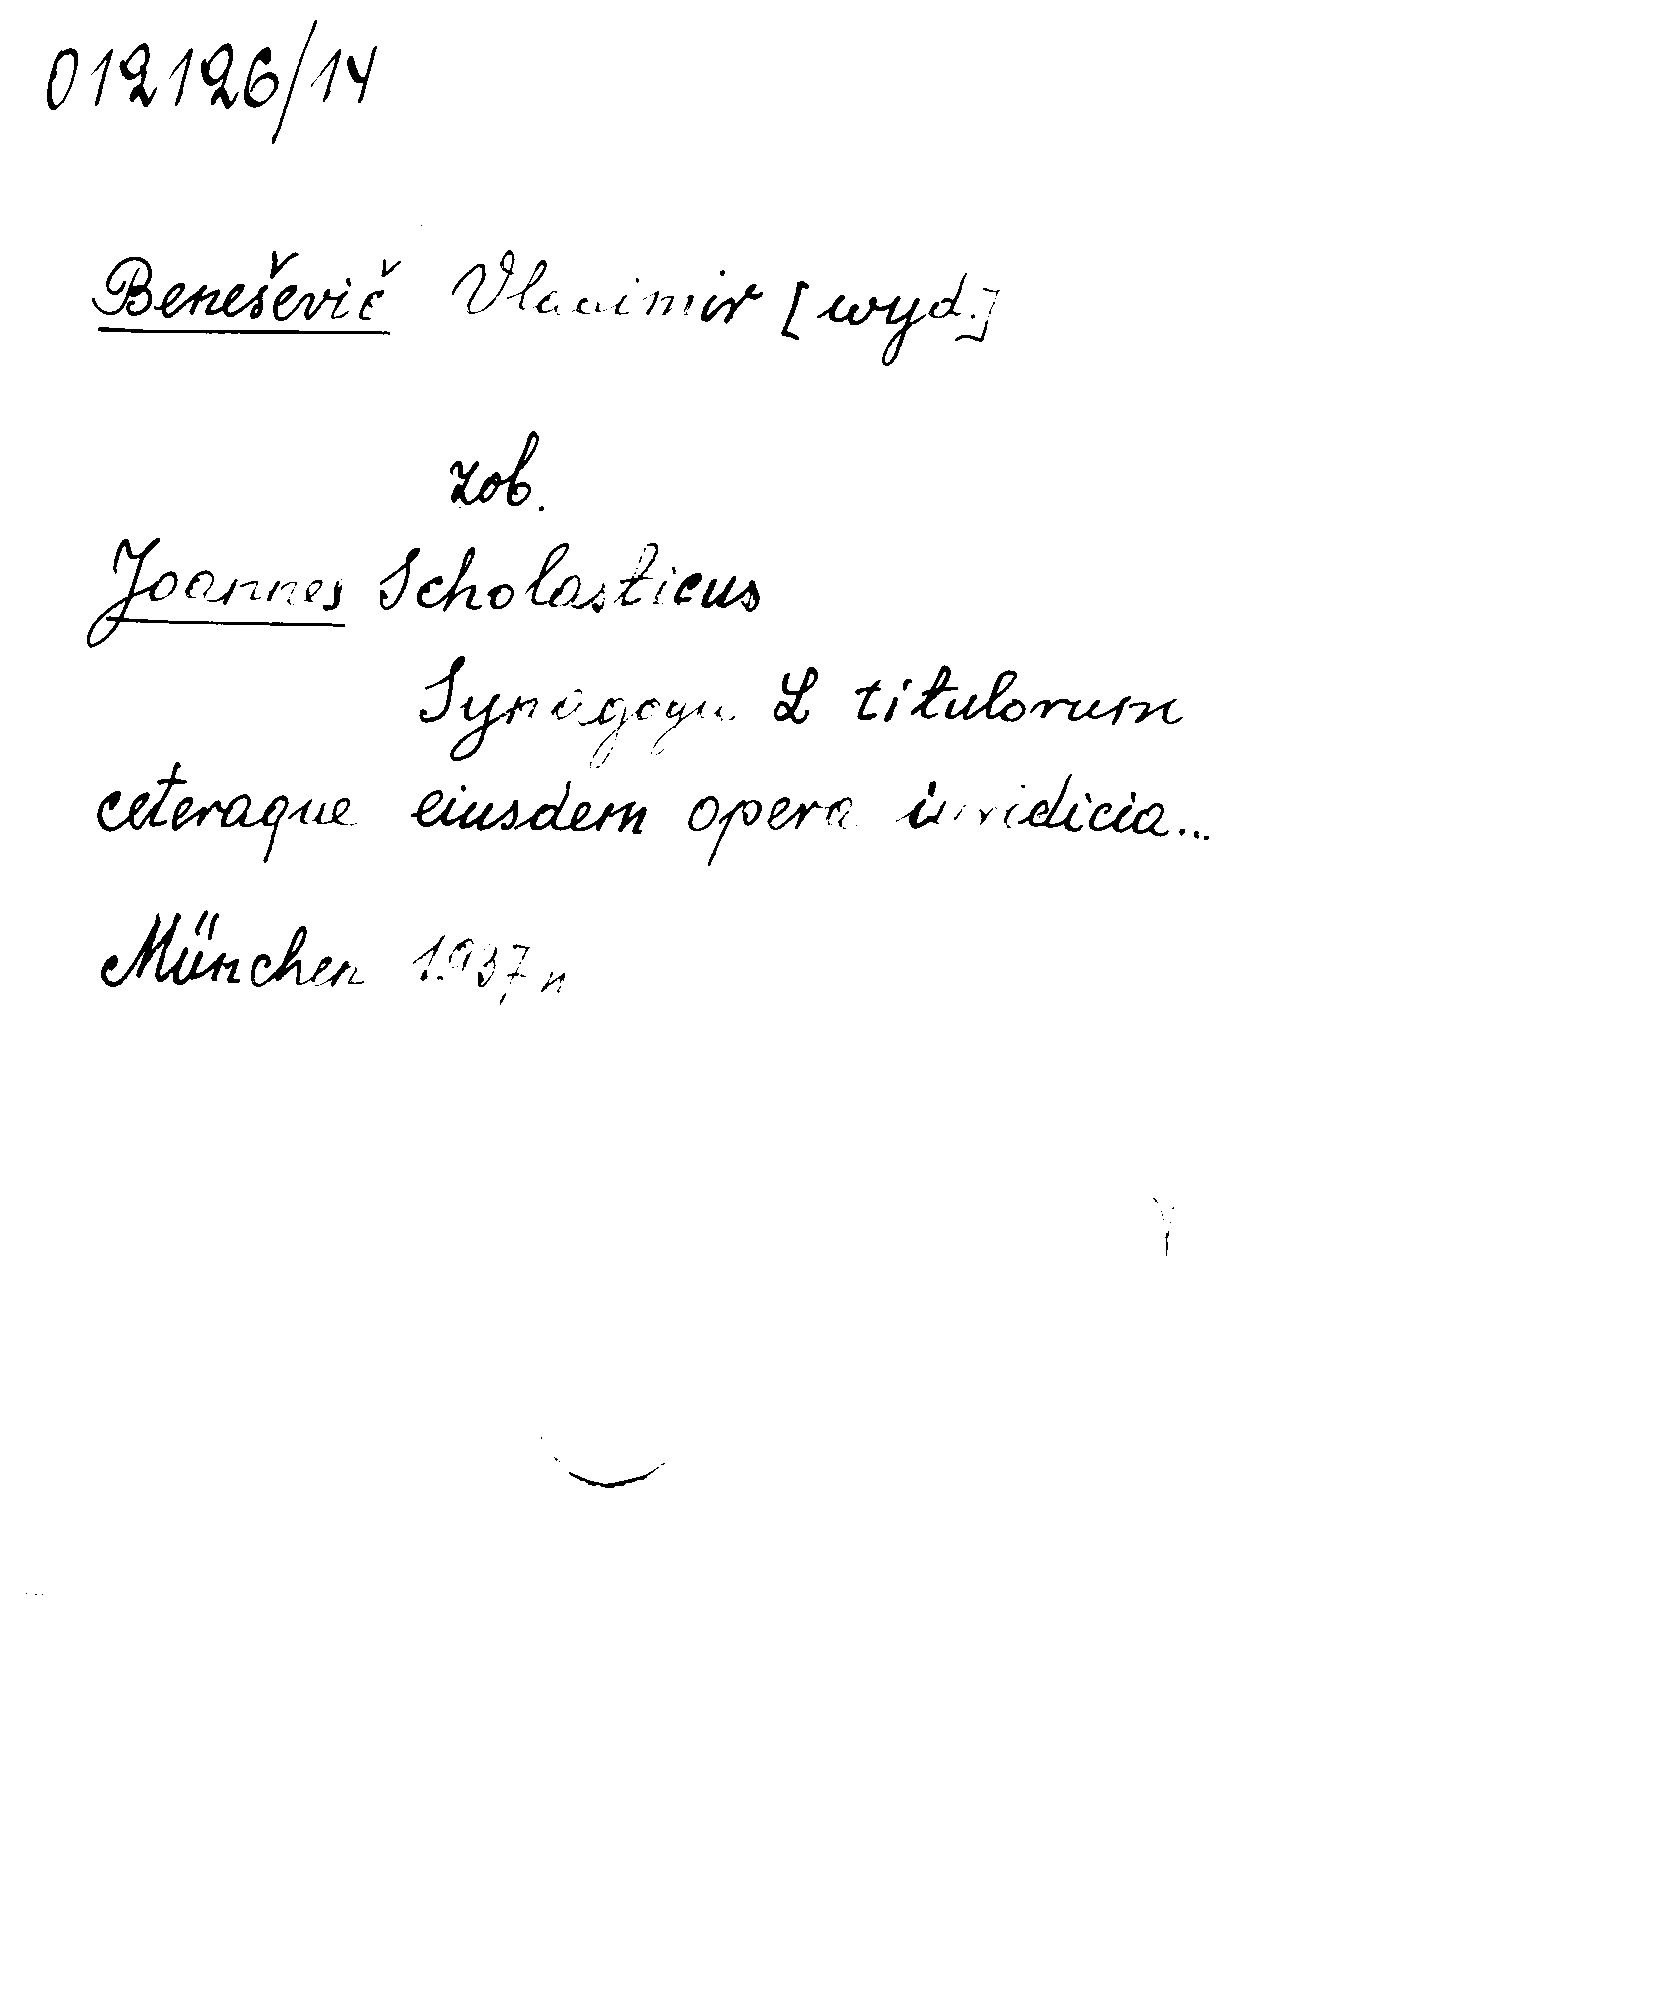 012126/14
Benešević Vladimir [wyd.]
zob.
Joannes Scholasticus
Synagoga L titulorum
ceteraque eiusdem opera iuridicia...
München 1937 r.